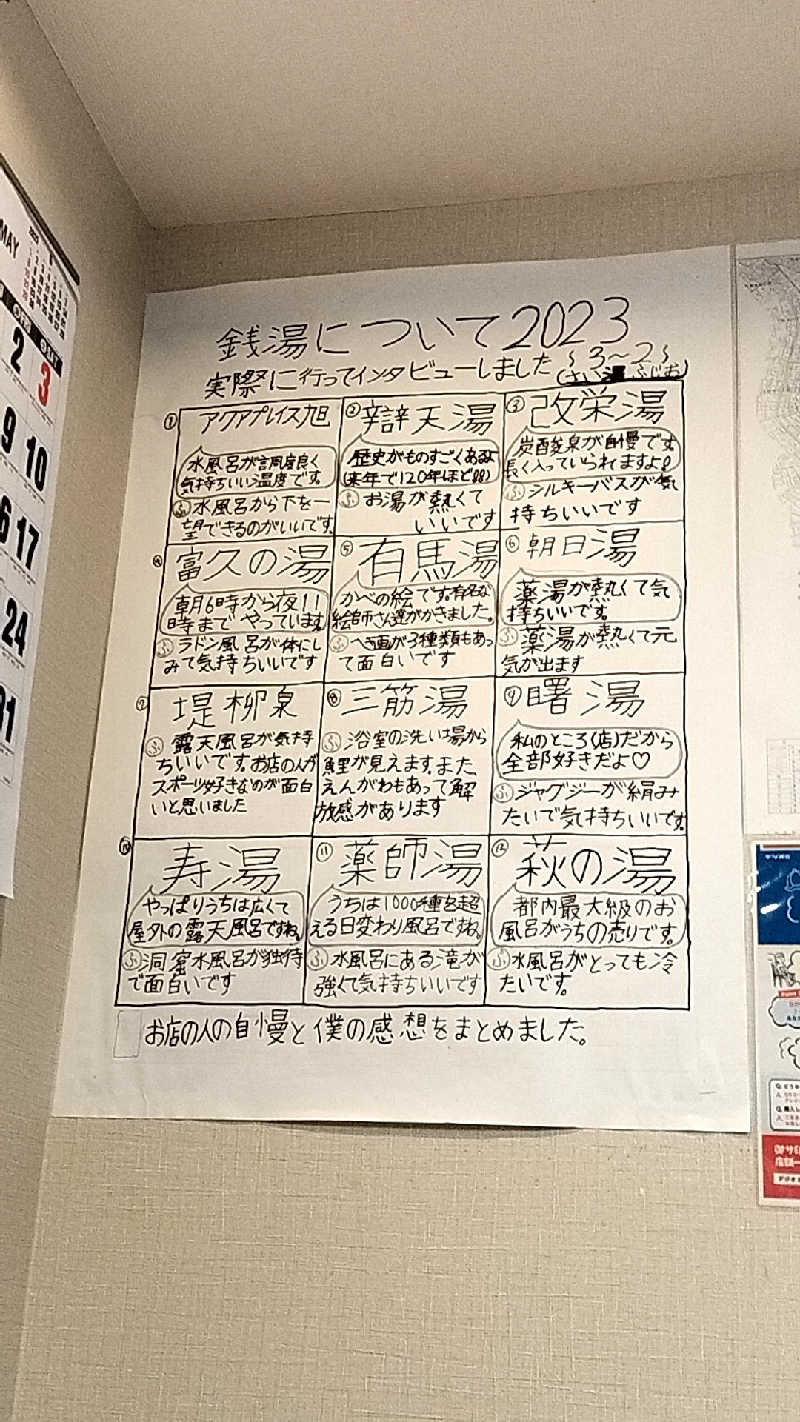 銭湯について2023
実際に行ってインタビューしました
① アクアプレイス旭
水風呂が調度良く
気持ちいい温度です
㋫水風呂から下を一
望できるのがいいです
② 辯天湯
歴史がものすごくあるよ
(来年で120年ほど!!)
㋫お湯が熱くて
いいです
③ 改栄湯
炭酸泉が自慢です
長く入っていられますよ!
㋫シルキーバスが気
持ちいいです
④ 富久の湯
朝6時から夜11
時までやっています
㋫ラドン風呂が体にし
みて気持ちいいです
⑤ 有馬湯
かべの絵です。有名な
絵師さん達がかきました。
㋫へき画が3種類もあっ
て面白いです
⑥ 朝日湯
薬湯が熱くて気
持ちいいです。
㋫薬湯が熱くて元
気が出ます
⑦ 堤柳泉
㋫露天風呂が気持
ちいいですお店の人が
スポーツ好きなのが面白
いと思いました
⑧ 三筋湯
㋫浴室の洗い場から
鯉が見えますまた
えんがわもあって解
放感があります
⑨ 曙湯
私のところ(店)だから
全部好きだよ♡
㋫ジャグジーが絹み
たいで気持ちいいです。
⑩ 寿湯
やっぱりうちは広くて
屋外の露天風呂ですね。
㋫洞窟水風呂が独特
で面白いです
⑪ 薬師湯
うちは1000種を超
える日変わり風呂ですね。
㋫水風呂にある滝が
強くて気持ちいいです
⑫ 萩の湯
都内最大級のお
風呂がうちの売りです。
㋫水風呂がとっても冷
たいです。
お店の人の自慢と僕の感想をまとめました。
MAY
2 3
9 10
17
24